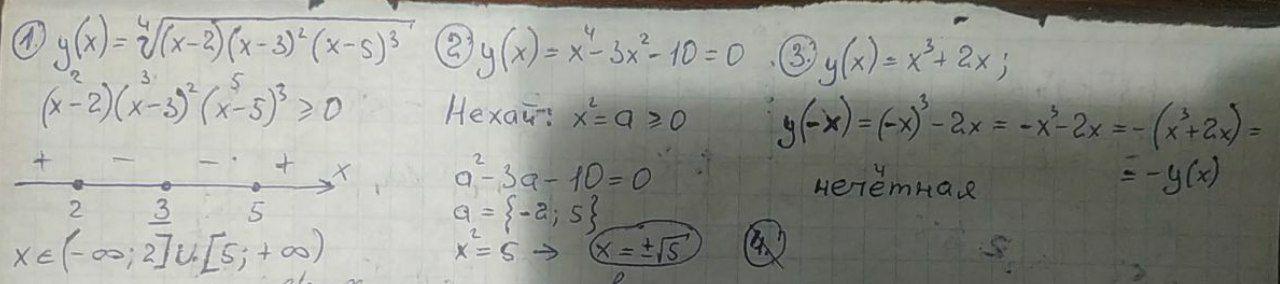 1. y(x) = ⁴√((x-2)(x-3)²(x-5)³)
2 3 5
(x-2)(x-3)²(x-5)³ ≥ 0
+ - - + x
2 3 5
x ∈ (-∞; 2] ∪ [5; +∞)
2. y(x) = x⁴ - 3x² - 10 = 0
Нехай: x² = a ≥ 0
a² - 3a - 10 = 0
a = {-2; 5}
x² = 5 → x = ±√5
3. y(x) = x³ + 2x;
y(-x) = (-x)³ - 2x = -x³ - 2x = -(x³ + 2x) =
= -y(x)
нечётная
4.